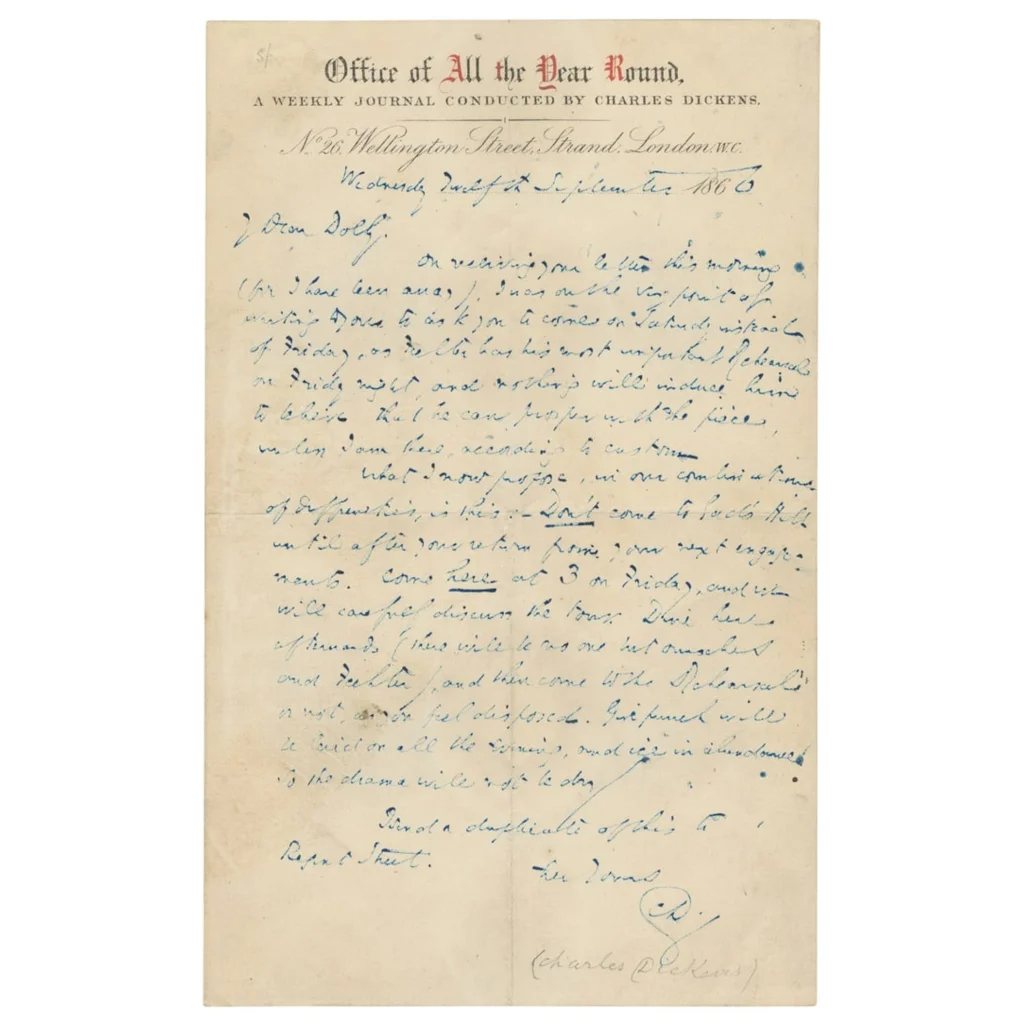 5/
Office of All the Year Round,
A WEEKLY JOURNAL CONDUCTED BY CHARLES DICKENS.
No. 26, Wellington Street, Strand, London, W.C.
Wednesday Twelfth September 1866
My Dear Dolby.
On receiving your letter this morning
(for I have been away), I was on the very point of
writing to you to ask you to come on Saturday instead
of Friday, as Fechter has his most important Rehearsal
on Friday night, and nothing will induce him
to believe that he can prosper with the piece,
unless I am there, according to custom.
What I now propose, in our combination
of difficulties, is this:- Don't come to Gad's Hill
until after your return from your next engage-
ments. Come here at 3 on Friday, and we
will carefully discuss the tour. Dine here
afterwards (there will be no one but ourselves
and Fechter), and then come to the Rehearsal
or not, as you feel disposed. Gin punch will
be laid on all the evening, and ice in abundance
So the drama will not be dry
I send a duplicate of this to
Regent Street.
Ever Yours
CD.
(Charles Dickens)